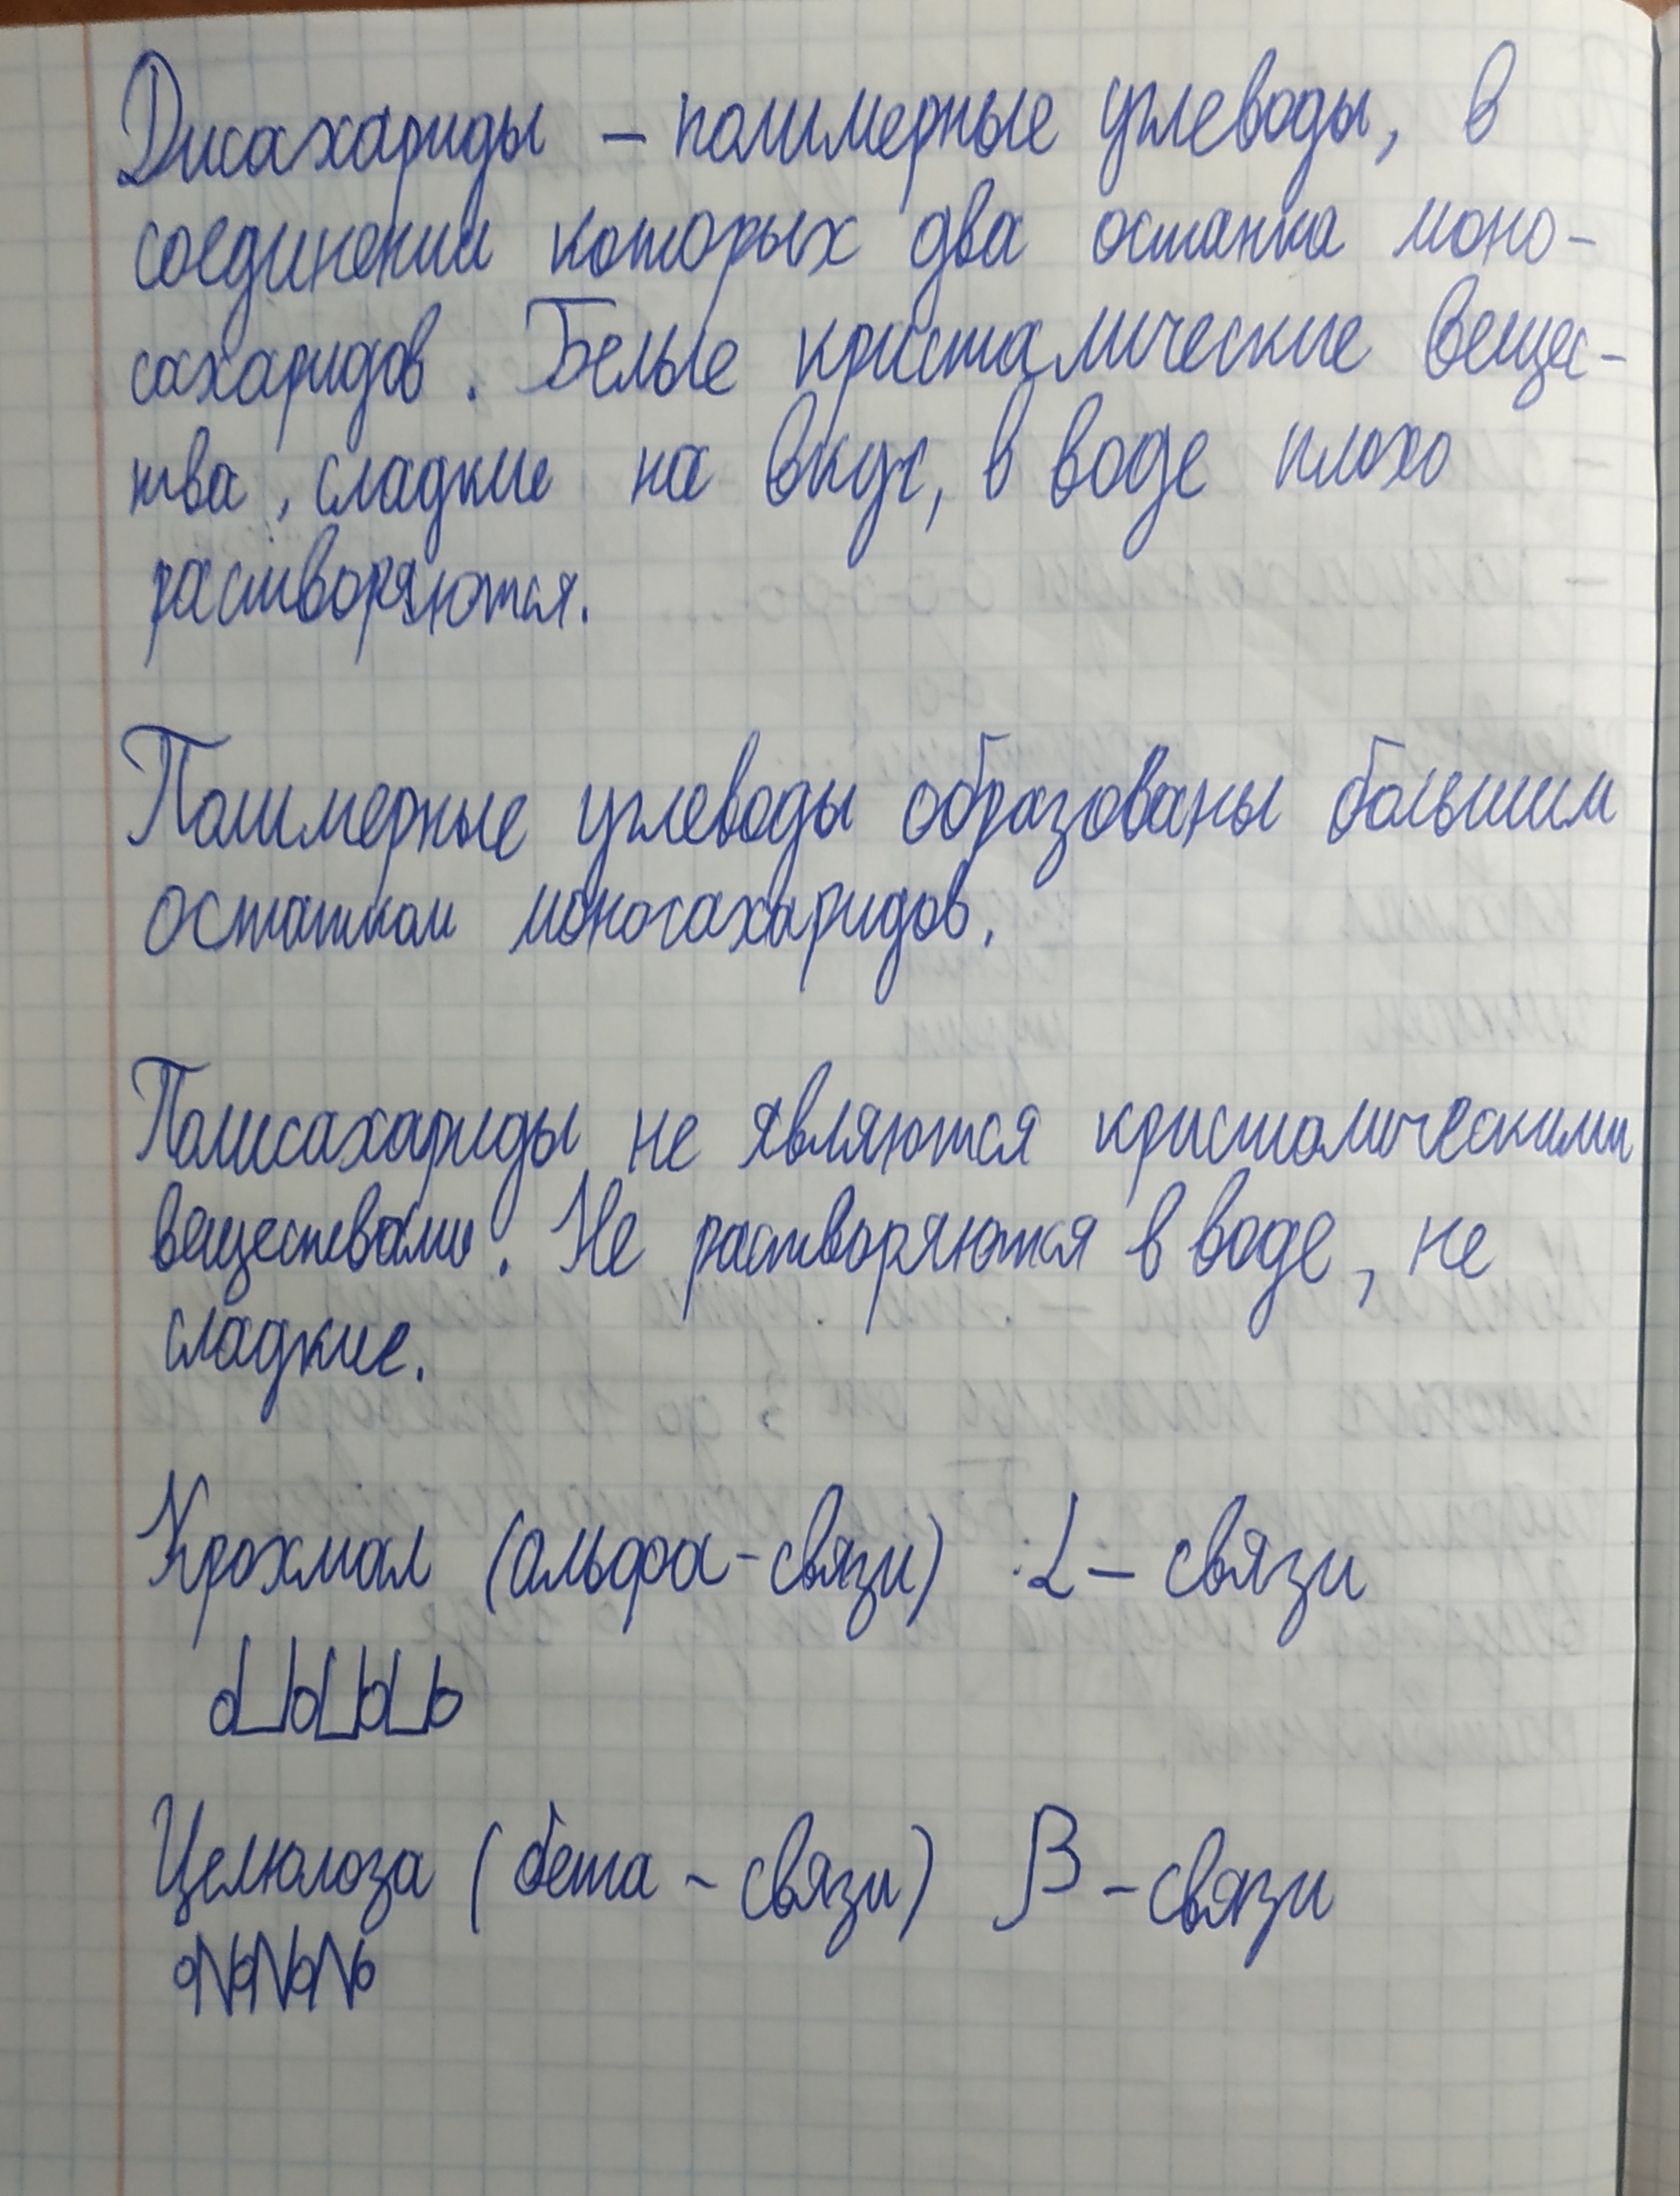 Дисахариды – полимерные углеводы, в
соединении которых два останка моно-
сахаридов. Белые кристалические вещес-
тва, сладкие на вкус, в воде плохо
растворяются.
Полимерные углеводы образованы большим
остатком моносахаридов.
Полисахариды не являются кристалическими
веществами. Не растворяются в воде, не
сладкие.
Крохмал (альфа-связи) L – связи
Целюлоза (бета - связи) β - связи